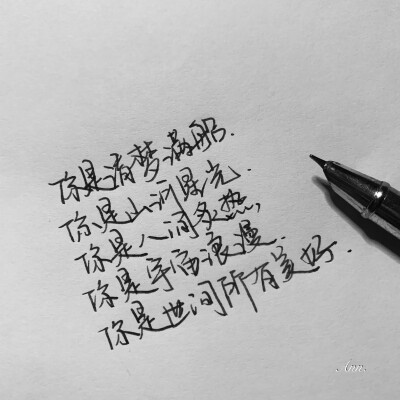 你是清梦满船.
你是山河晨光.
你是人间炙热,
你是宇宙浪漫.
你是世间所有美好.
Ann.